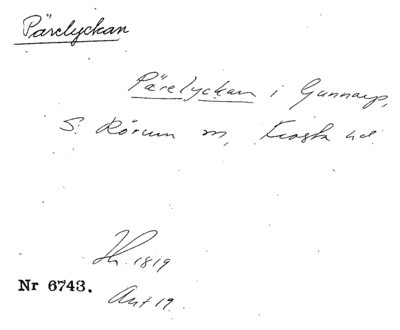 Pärelyckan
Pärelyckan i Gunnarp,
S. Rörum sn, Frosta hd.
Jb. 1819
Nr 6743.
Akt 19.